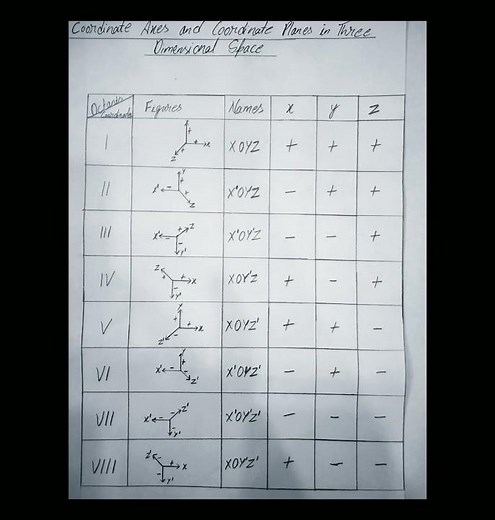 Coordinate Axes and Coordinate Planes in Three
Dimensional Space
Octants Coordinate Figures Names x y z
I XOYZ + + +
II X'OYZ - + +
III X'OY'Z - - +
IV XOY'Z + - +
V XOYZ' + + -
VI X'OYZ' - + -
VII X'OY'Z' - - -
VIII XOY'Z' + - -